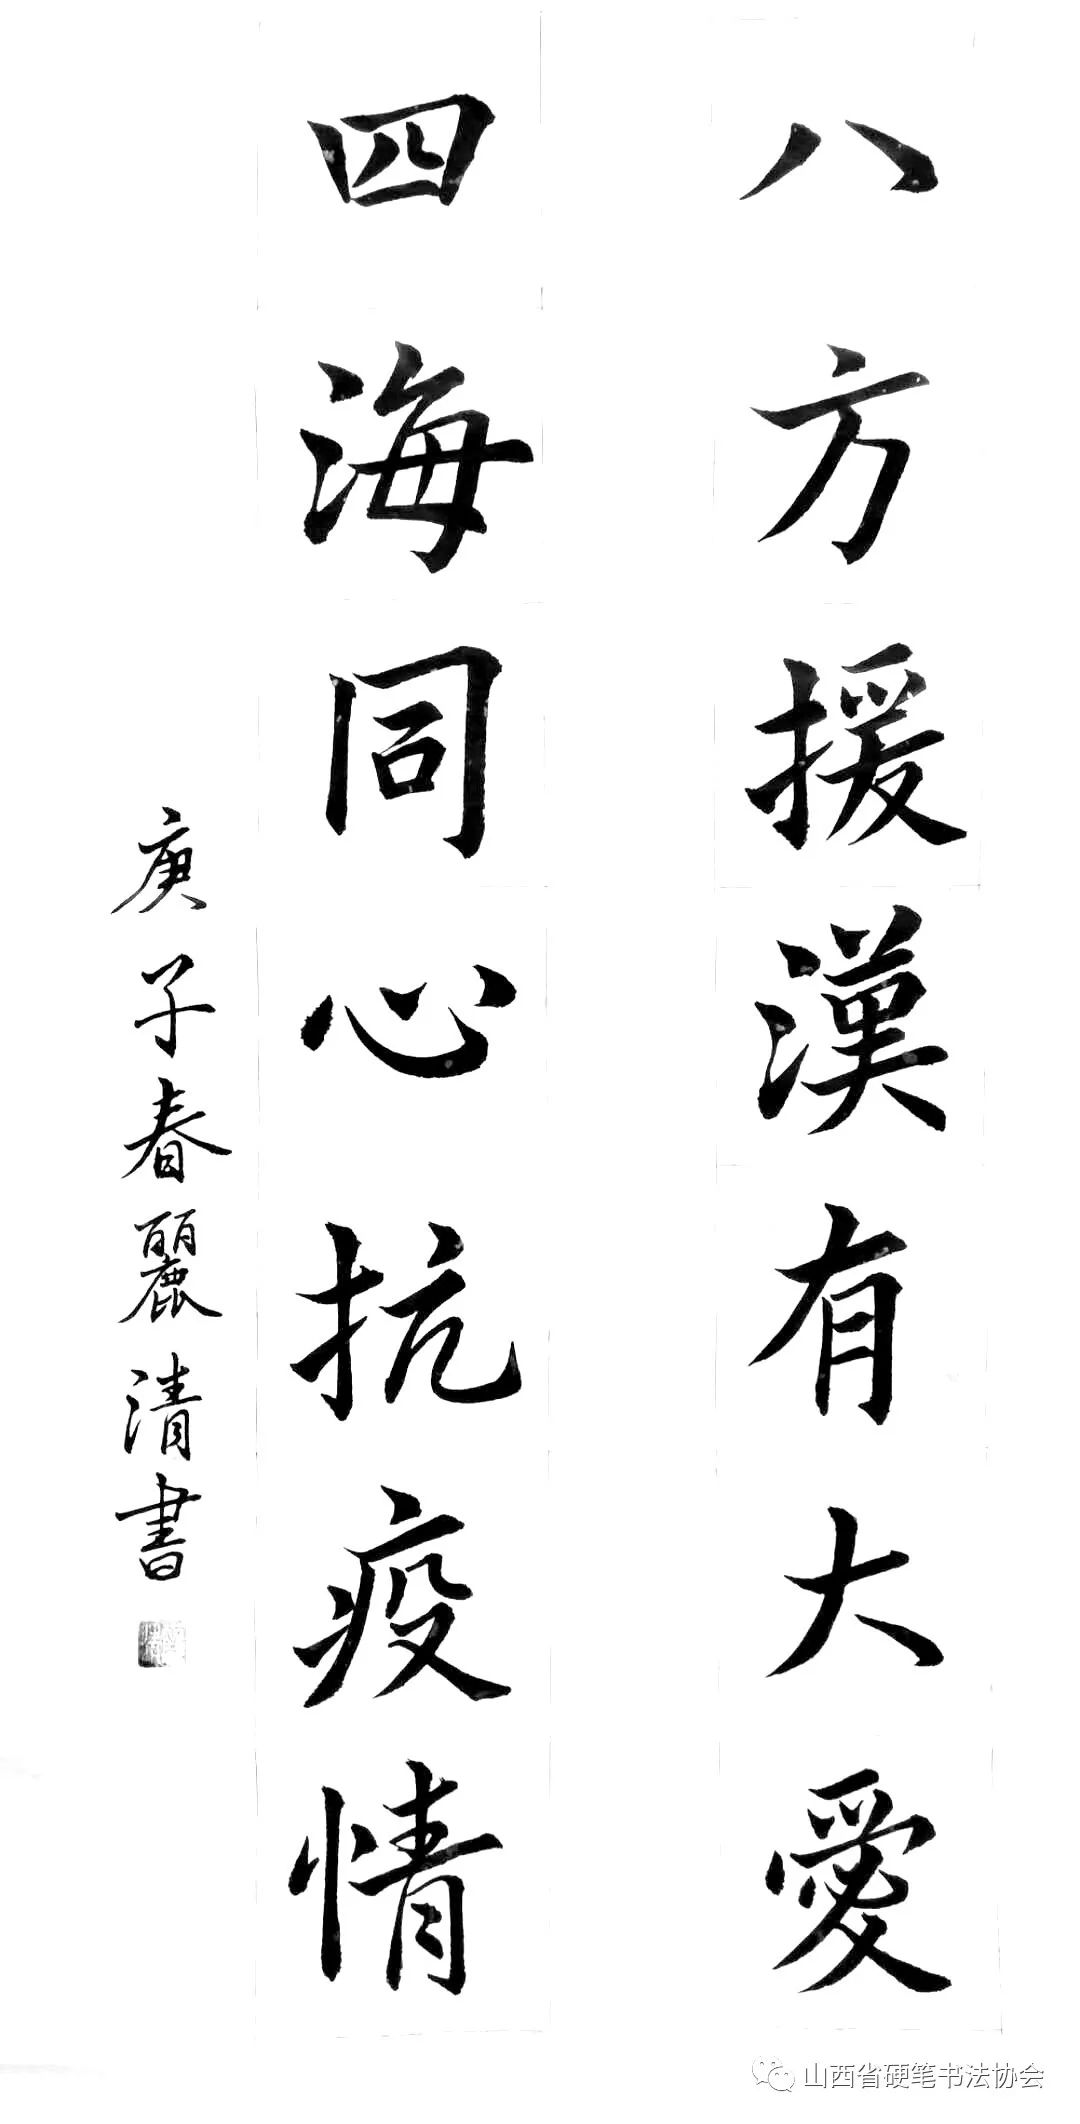 八方援漢有大愛
四海同心抗疫情
庚子春麗清書
山西省硬笔书法协会